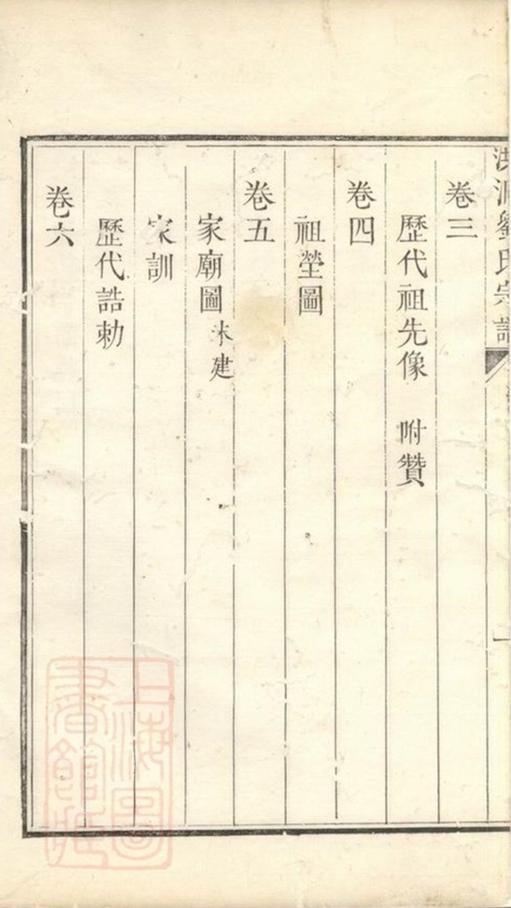 劉氏宗譜
卷三
歷代祖先像 附贊
卷四
祖塋圖
卷五
家廟圖 未建
家訓
歷代誥勅
卷六
上海圖書館藏